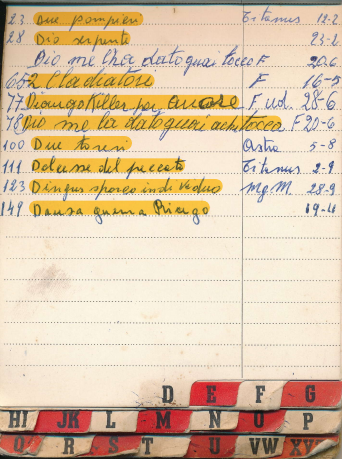 23 Due pompieri Titanus 12-2
28 Dio serpente 23-2
Dio me l'ha dato guai tocco F 20-6
652 Gladiatori F 16-5
77 Django Killer per amore F. ud. 28-6
78 Dio me la dato guai a chi tocca F 20-6
100 Due toreri Astra 5-8
111 Dolcezze del peccato Titanus 2-9
123 Dingus sporco individuo MgM. 28-9
149 Dansa guerra Ricigo 19-4
D E F G
HI JK L M N O P
Q R S T U VW XY